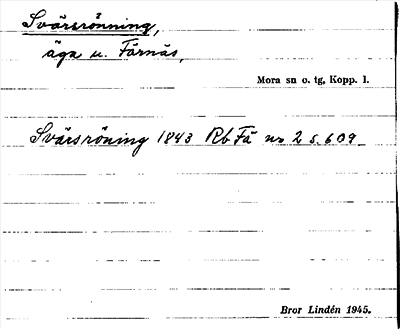 Svärsrönning,
äga u. Färnäs,
Mora sn o. tg, Kopp. l.
Svärsröning 1843 Rb Fä nr 2 s. 609
Bror Lindén 1945.